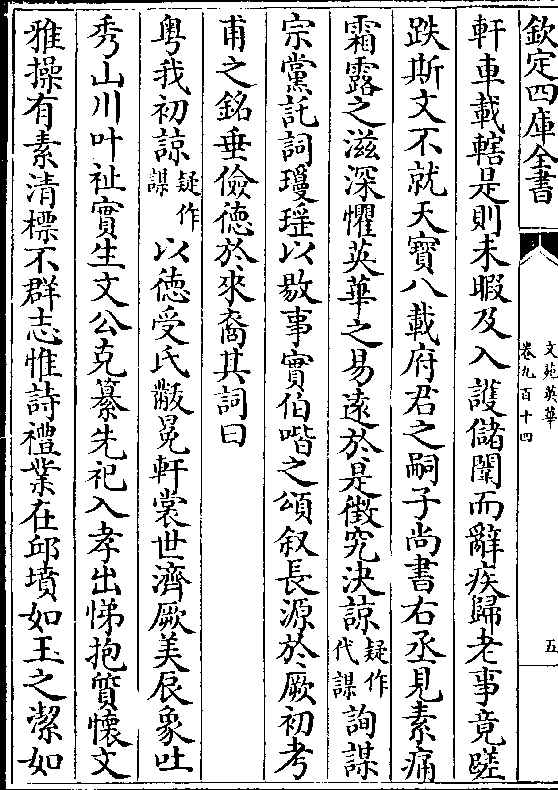 欽定四庫全書
文苑英華
卷九百十四
五
軒車載轄是則未暇及入護儲闈而辭疾歸老事竟蹉
跌斯文不就天寶八載府君之嗣子尚書右丞見素痛
霜露之滋深懼英華之易遠於是徵究決諒疑作代謀詢謀
宗黨託詞瓊瑶以敭事實伯喈之頌叙長源於厥初考
甫之銘垂儉德於來裔其詞曰
粤我初諒疑作謀以德受氏黻冕軒裳世濟厥美辰象吐
秀山川叶祉實生文公克纂先祀入孝出悌抱質懷文
雅操有素清標不群志惟詩禮業在邱墳如玉之潔如